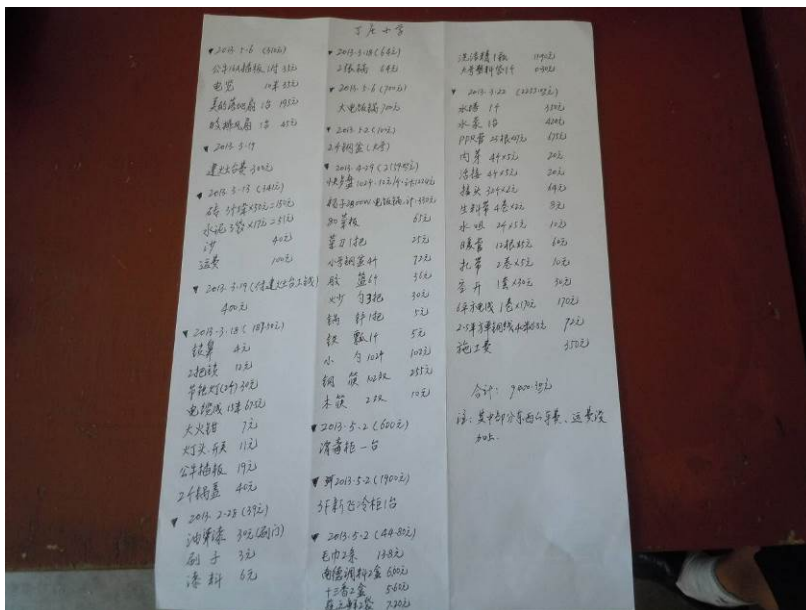 丁庄小学
▼2013.5.6 (310元)
公牛插板 1付 35元
电览 10米 35元
美的落地扇 1台 195元
1台 45元
▼2013.3.19
建灶台费 300元
▼2013.3.13 (341元)
砖 3仟块×50元=150元
水泥3袋×17元=51元
沙 40元
运费 100元
▼2013.3.19 (修建灶台工钱)
400元
▼2013.3.18
4元
2把锁 12元
节能灯(2个) 30元
电揽线 15米 67.5元
大火钳 7元
灯头.开关 11元
公牛插板 19元
2个锅盖 40元
▼2013.2.28 (39元)
油苹漆 30元(刷门)
刷子 3元
漆料 6元
▼2013.3.18 (64元)
2张锅 64元
▼2013.5.6 (700元)
大电饭锅 700元
▼2013.5.2 (10元)
2个钢盆(大号)
▼2013.4.29
快歺盘 102个.12元/个.计:1224元
电饭锅.计:330元
菜板 65元
菜刀1把 25元
小号钢盆4个 72元
胶盆6个 36元
炒勺3把 30元
锅铲1把 5元
铁瓢1个 5元
小勺 102个 102元
钢筷 102双 255元
木筷 2双 10元
▼2013.5.2 (600元)
消毒柜一台
▼2013.5.2 (1900元)
新飞冷柜1台
▼2013.5.2 (44.80元)
毛巾2条 13.8元
南德调料2盒 6.00元
十三香2盒 5.60元
2袋 7.20元
洗洁精1瓶
大号塑料袋1个
▼2013.3.22
水塔 1个 350元
水泵 1台 420元
PPR管 25根×27元 675元
内芽 4个×5元 20元
活接 4个×5元 20元
接头 32个×2元 64元
生料带 4卷×2元 8元
水咀 2个×5元 10元
暖管 12根×5元 60元
扎带 2卷×5元 10元
空开 1套×30元 30元
6平方电线 1卷×170元 170元
2.5平方单铜线 92元
施工费 350元
合计: 9400.30元
注:其中部分东西公车费、运费没